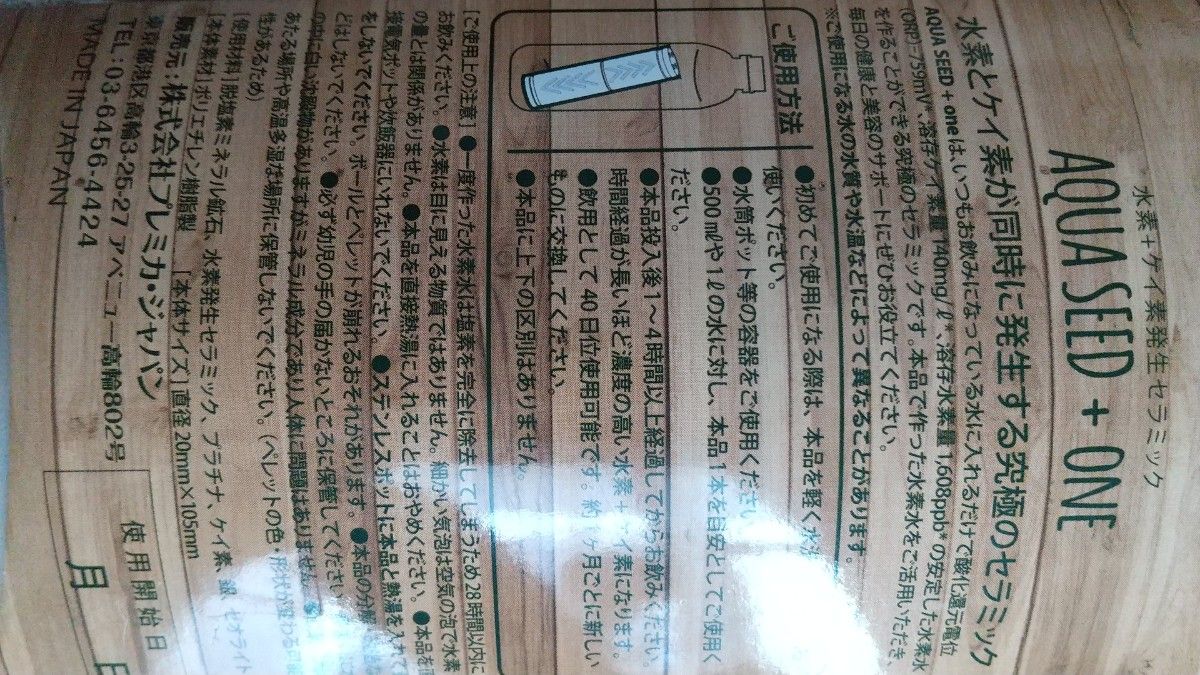 水素＋ケイ素発生セラミック
AQUA SEED + ONE
水素とケイ素が同時に発生する究極のセラミック
AQUA SEED + oneは、いつもお飲みになっている水に入れるだけで酸化還元電位
(ORP)-759mV*、溶存ケイ素量 140mg/ℓ*、溶存水素量 1,608ppb*の安定した水素水
を作ることができる究極のセラミックです。本品で作った水素水をご活用いただき、
毎日の健康と美容のサポートにぜひお役立てください。
※ご使用になる水の水質や水温などによって異なることがあります。
ご使用方法
●初めてご使用になる際は、本品を軽く
使いください。
●水筒ポット等の容器をご使用ください
●500mℓや1ℓの水に対し、本品1本を目安としてご使用く
ださい。
●本品投入後1〜4時間以上経過してからお飲みください。
時間経過が長いほど濃度の高い水素＋ケイ素になります。
●飲用として40日位使用可能です。約1ヶ月ごとに新しい
ものに交換してください。
●本品に上下の区別はありません。
[ご使用上の注意] ●一度作った水素水は塩素を完全に除去してしまうため28時間以内に
お飲みください。●水素は目に見える物質ではありません。細かい気泡は空気の泡で水素
の量とは関係がありません。●本品を直接熱湯に入れることはおやめください。●本品を
接電気ポットや炊飯器にいれないでください。●ステンレスポットに本品と熱湯を入れて
をしないでください。ボールとペレットが崩れるおそれがあります。●本品の分解
とはしないでください。●必ず幼児の手の届かないところに保管してください
の中に白い沈殿物がありますがミネラル成分であり人体に問題はありません
あたる場所や高温多湿な場所に保管しないでください。(ペレットの色・形状が変わる可能
性があるため)
[使用材料] 脱塩素ミネラル鉱石、水素発生セラミック、プラチナ、ケイ素、銀、ゼオライト
[本体素材] ポリエチレン樹脂製 [本体サイズ] 直径 20mm×105mm
販売元：株式会社プレミカ・ジャパン
東京都港区高輪3-25-27 アベニュー高輪802号
TEL：03-6456-4424
MADE IN JAPAN
使用開始日
月 日